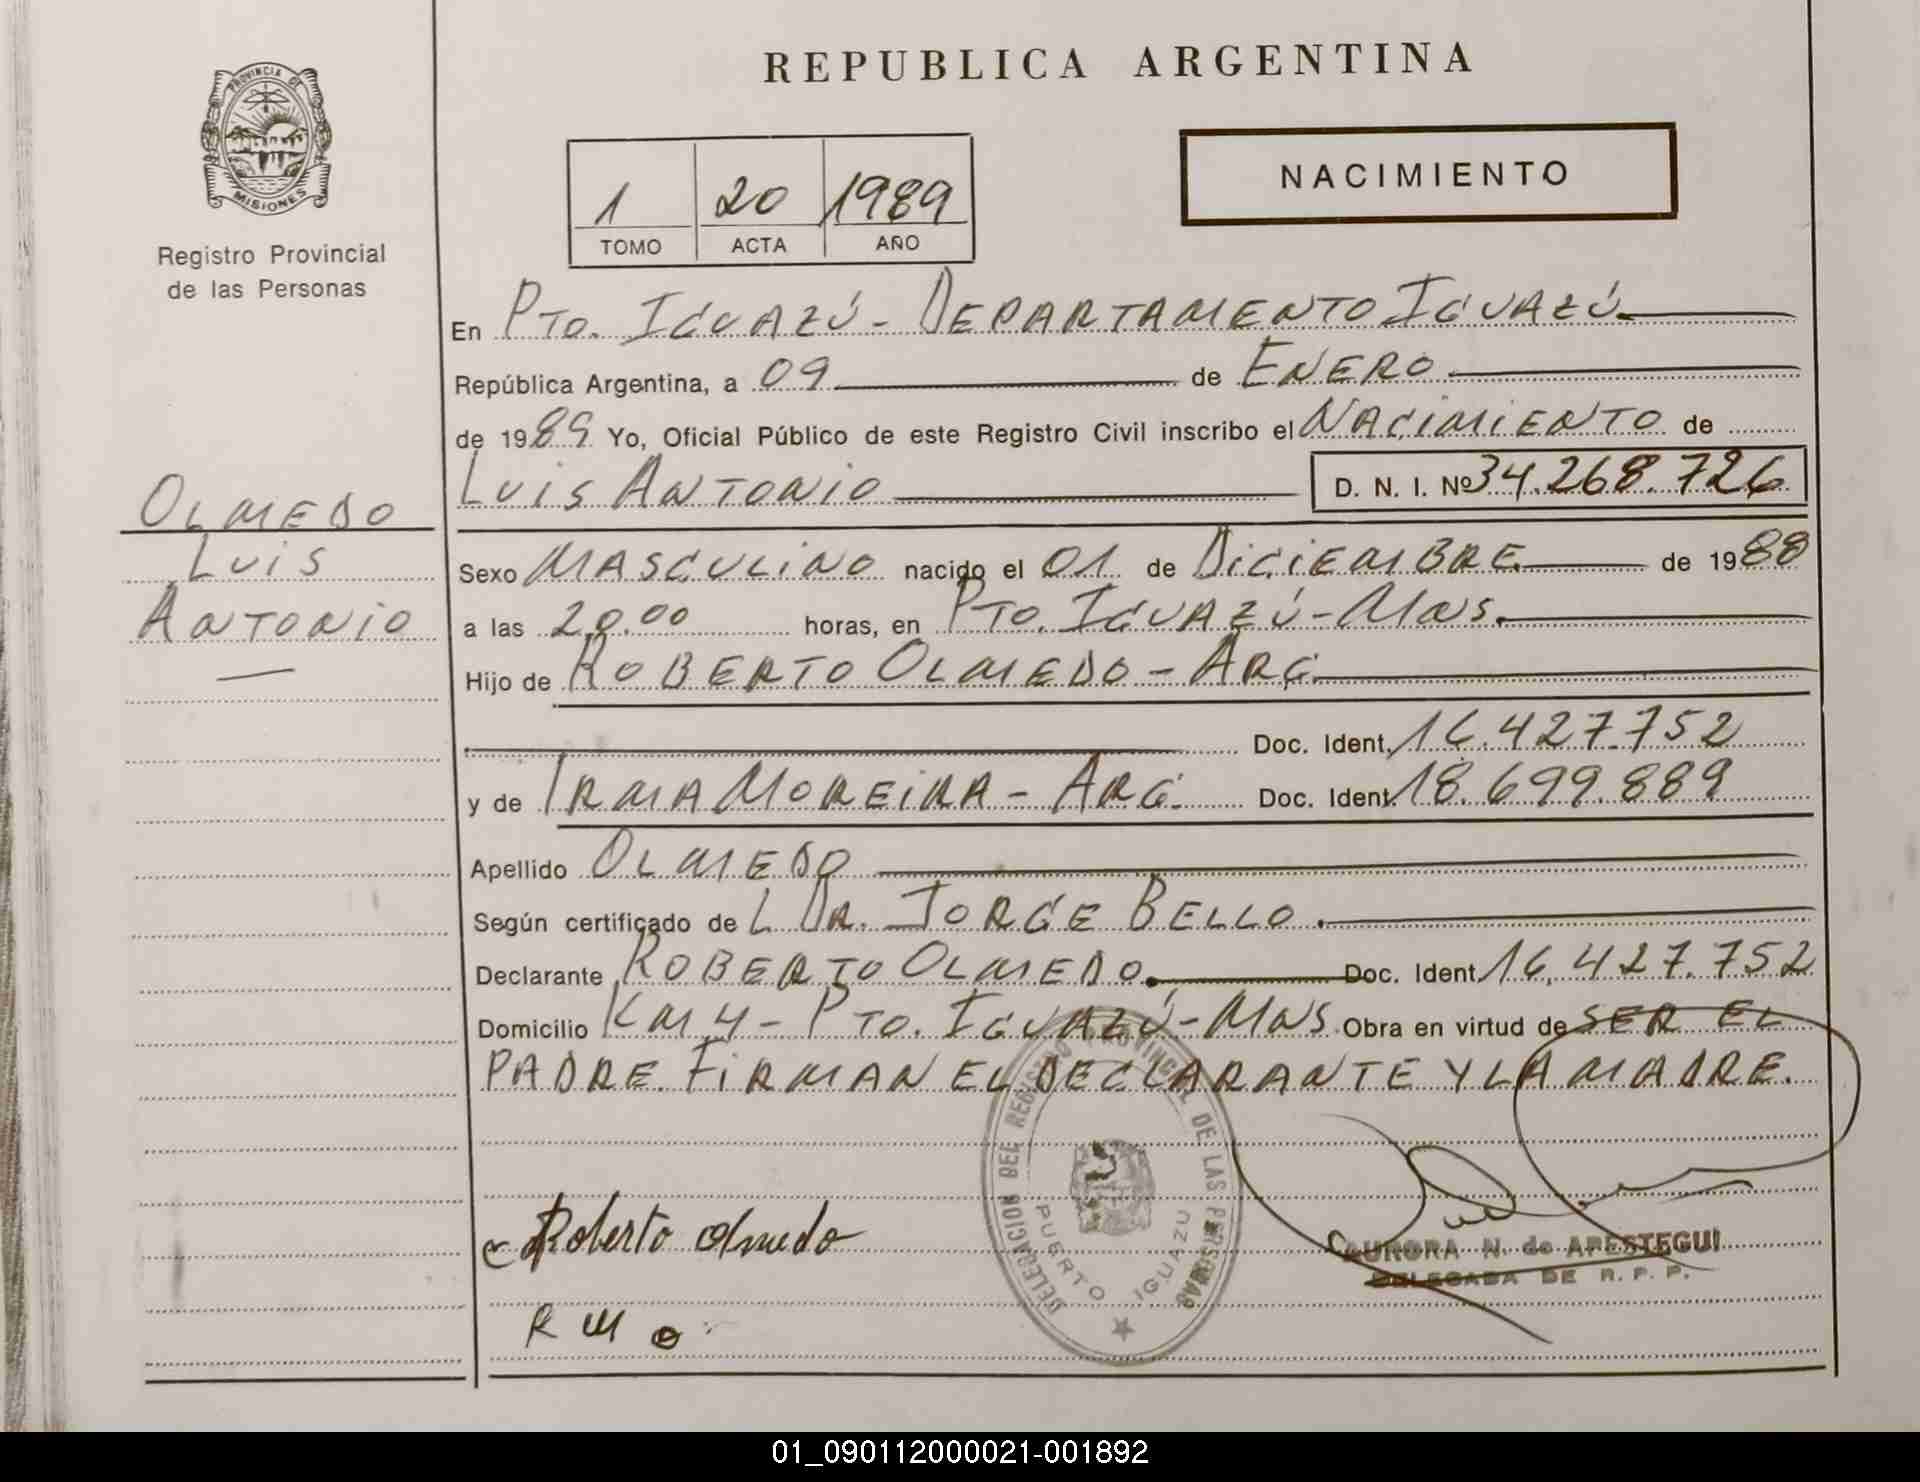 PROVINCIA DE
MISIONES
Registro Provincial
de las Personas
OLMEDO
LUIS
ANTONIO
REPUBLICA ARGENTINA
1 20 1989
TOMO ACTA AÑO
NACIMIENTO
En PTO. IGUAZÚ - DEPARTAMENTO IGUAZÚ
República Argentina, a 09 de ENERO
de 1989 Yo, Oficial Público de este Registro Civil inscribo el NACIMIENTO de
LUIS ANTONIO D. N. I. Nº 34.268.726
Sexo MASCULINO nacido el 01 de DICIEMBRE de 1988
a las 20.00 horas, en PTO. IGUAZÚ - MNS.
Hijo de ROBERTO OLMEDO - ARG.
Doc. Ident. 16.427.752
y de IRMA MOREIRA - ARG. Doc. Ident. 18.699.889
Apellido OLMEDO
Según certificado de L DR. JORGE BELLO.
Declarante ROBERTO OLMEDO. Doc. Ident. 16.427.752
Domicilio KM 4 - PTO. IGUAZÚ - MNS. Obra en virtud de SER EL
PADRE. FIRMAN EL DECLARANTE Y LA MADRE.
DELEGACION DEL REGISTRO PROVINCIAL DE LAS PERSONAS
PUERTO IGUAZU
Roberto Olmedo
AURORA N. de APESTEGUI
DELEGADA DE R. P. P.
01_090112000021-001892